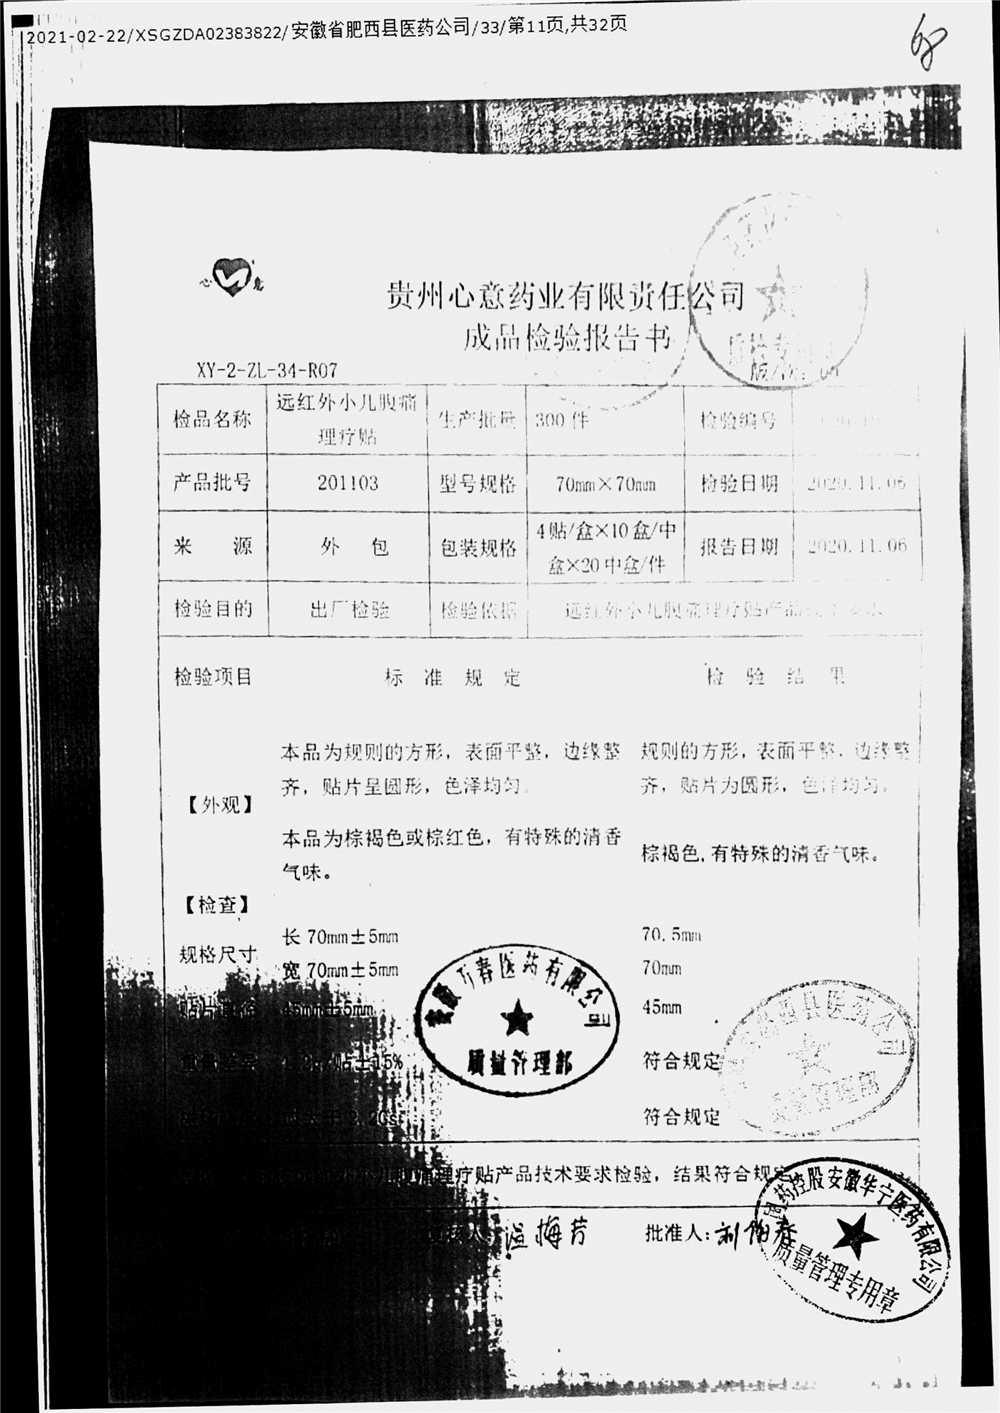 2021-02-22/XSGZDA02383822/安徽省肥西县医药公司/33/第11页,共32页
68
心 意
贵州心意药业有限责任公司
成品检验报告书
XY-2-ZL-34-R07
检品名称 远红外小儿腹痛理疗贴 生产批量 300 件 检验编号
产品批号 201103 型号规格 70mm×70mm 检验日期 2020.11.06
来 源 外 包 包装规格 4贴/盒×10盒/中盒×20中盒/件 报告日期 2020.11.06
检验目的 出厂检验 检验依据 远红外小儿腹痛理疗贴产品技术要求
检验项目 标 准 规 定 检 验 结 果
【外观】
本品为规则的方形，表面平整，边缘整 规则的方形，表面平整，边缘整
齐，贴片呈圆形，色泽均匀。 齐，贴片为圆形，色泽均匀。
本品为棕褐色或棕红色，有特殊的清香 棕褐色,有特殊的清香气味。
气味。
【检查】
规格尺寸 长 70mm±5mm 70.5mm
宽 70mm±5mm 70mm
45mm±5mm 45mm
贴±15% 符合规定
符合规定
理疗贴产品技术要求检验，结果符合规定
温梅芳 批准人:
安徽万春医药有限公司
质量管理部
肥西县医药公司
国药控股安徽华宁医药有限公司
质量管理专用章